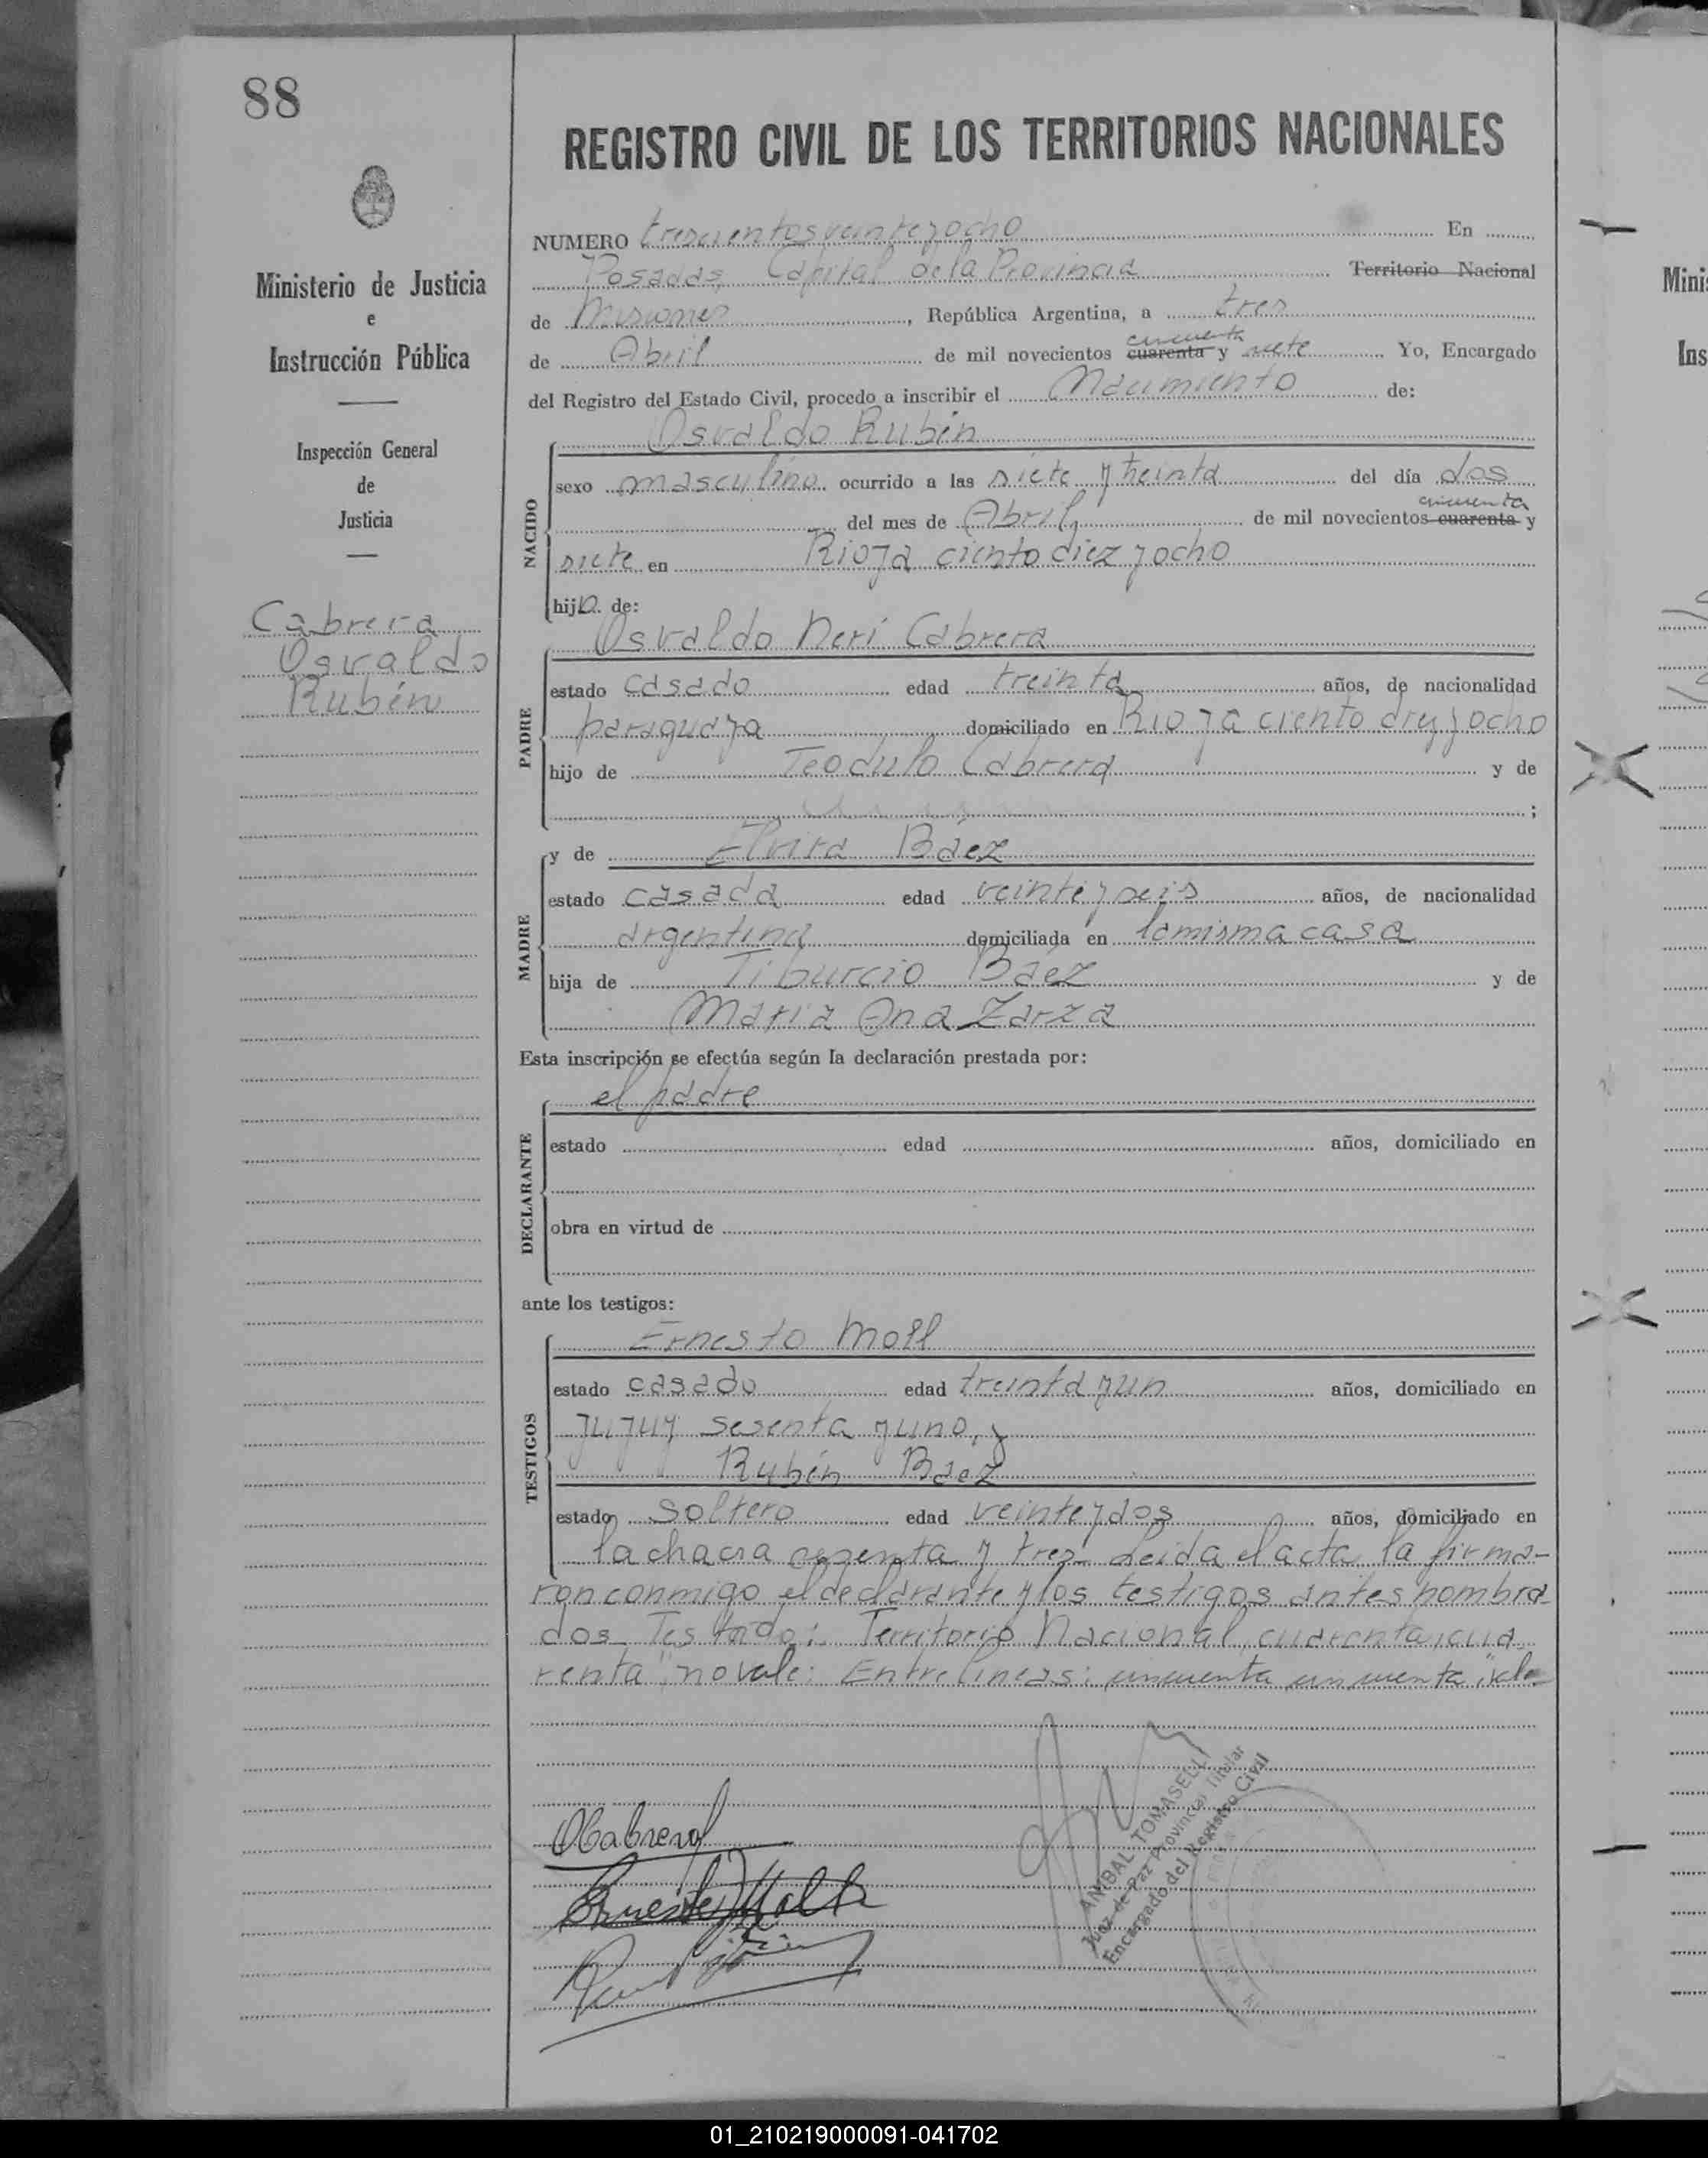 88
REGISTRO CIVIL DE LOS TERRITORIOS NACIONALES
Ministerio de Justicia
e
Instrucción Pública
Inspección General
de
Justicia
Cabrera
Osvaldo
Rubén
NUMERO trescientos veinte y ocho En
Posadas, Capital de la Provincia Territorio Nacional
de Misiones, República Argentina, a tres
cincuenta
de Abril de mil novecientos cuarenta y siete Yo, Encargado
del Registro del Estado Civil, procedo a inscribir el Nacimiento de:
NACIDO
Osvaldo Rubén
sexo masculino ocurrido a las siete y treinta del día dos
cincuenta
del mes de Abril, de mil novecientos cuarenta y
siete en Rioja ciento diez y ocho
hijo de:
PADRE
Osvaldo Neri Cabrera
estado casado edad treinta años, de nacionalidad
paraguaya domiciliado en Rioja ciento diez y ocho
hijo de Teodulo Cabrera y de
;
MADRE
y de Elvira Báez
estado casada edad veinte y seis años, de nacionalidad
argentina domiciliada en la misma casa
hija de Tiburcio Báez y de
Maria Ana Zarza
Esta inscripción se efectúa según la declaración prestada por:
DECLARANTE
el padre
estado edad años, domiciliado en
obra en virtud de
ante los testigos:
TESTIGOS
Ernesto Moll
estado casado edad treinta y un años, domiciliado en
Jujuy sesenta y uno, y
Rubén Báez
estado soltero edad veinte y dos años, domiciliado en
la chacra sesenta y tres. Leida el acta, la firma-
ron conmigo el declarante y los testigos antes nombra-
dos Testado: Territorio Nacional, cuarenta, cua
renta" no vale: Entre lineas: cincuenta cincuenta" vale
OCabrera
ANIBAL TOMASELLI
Juez de Paz Provincial Titular
Encargado del Registro Civil
Mini
Ins
01_210219000091-041702